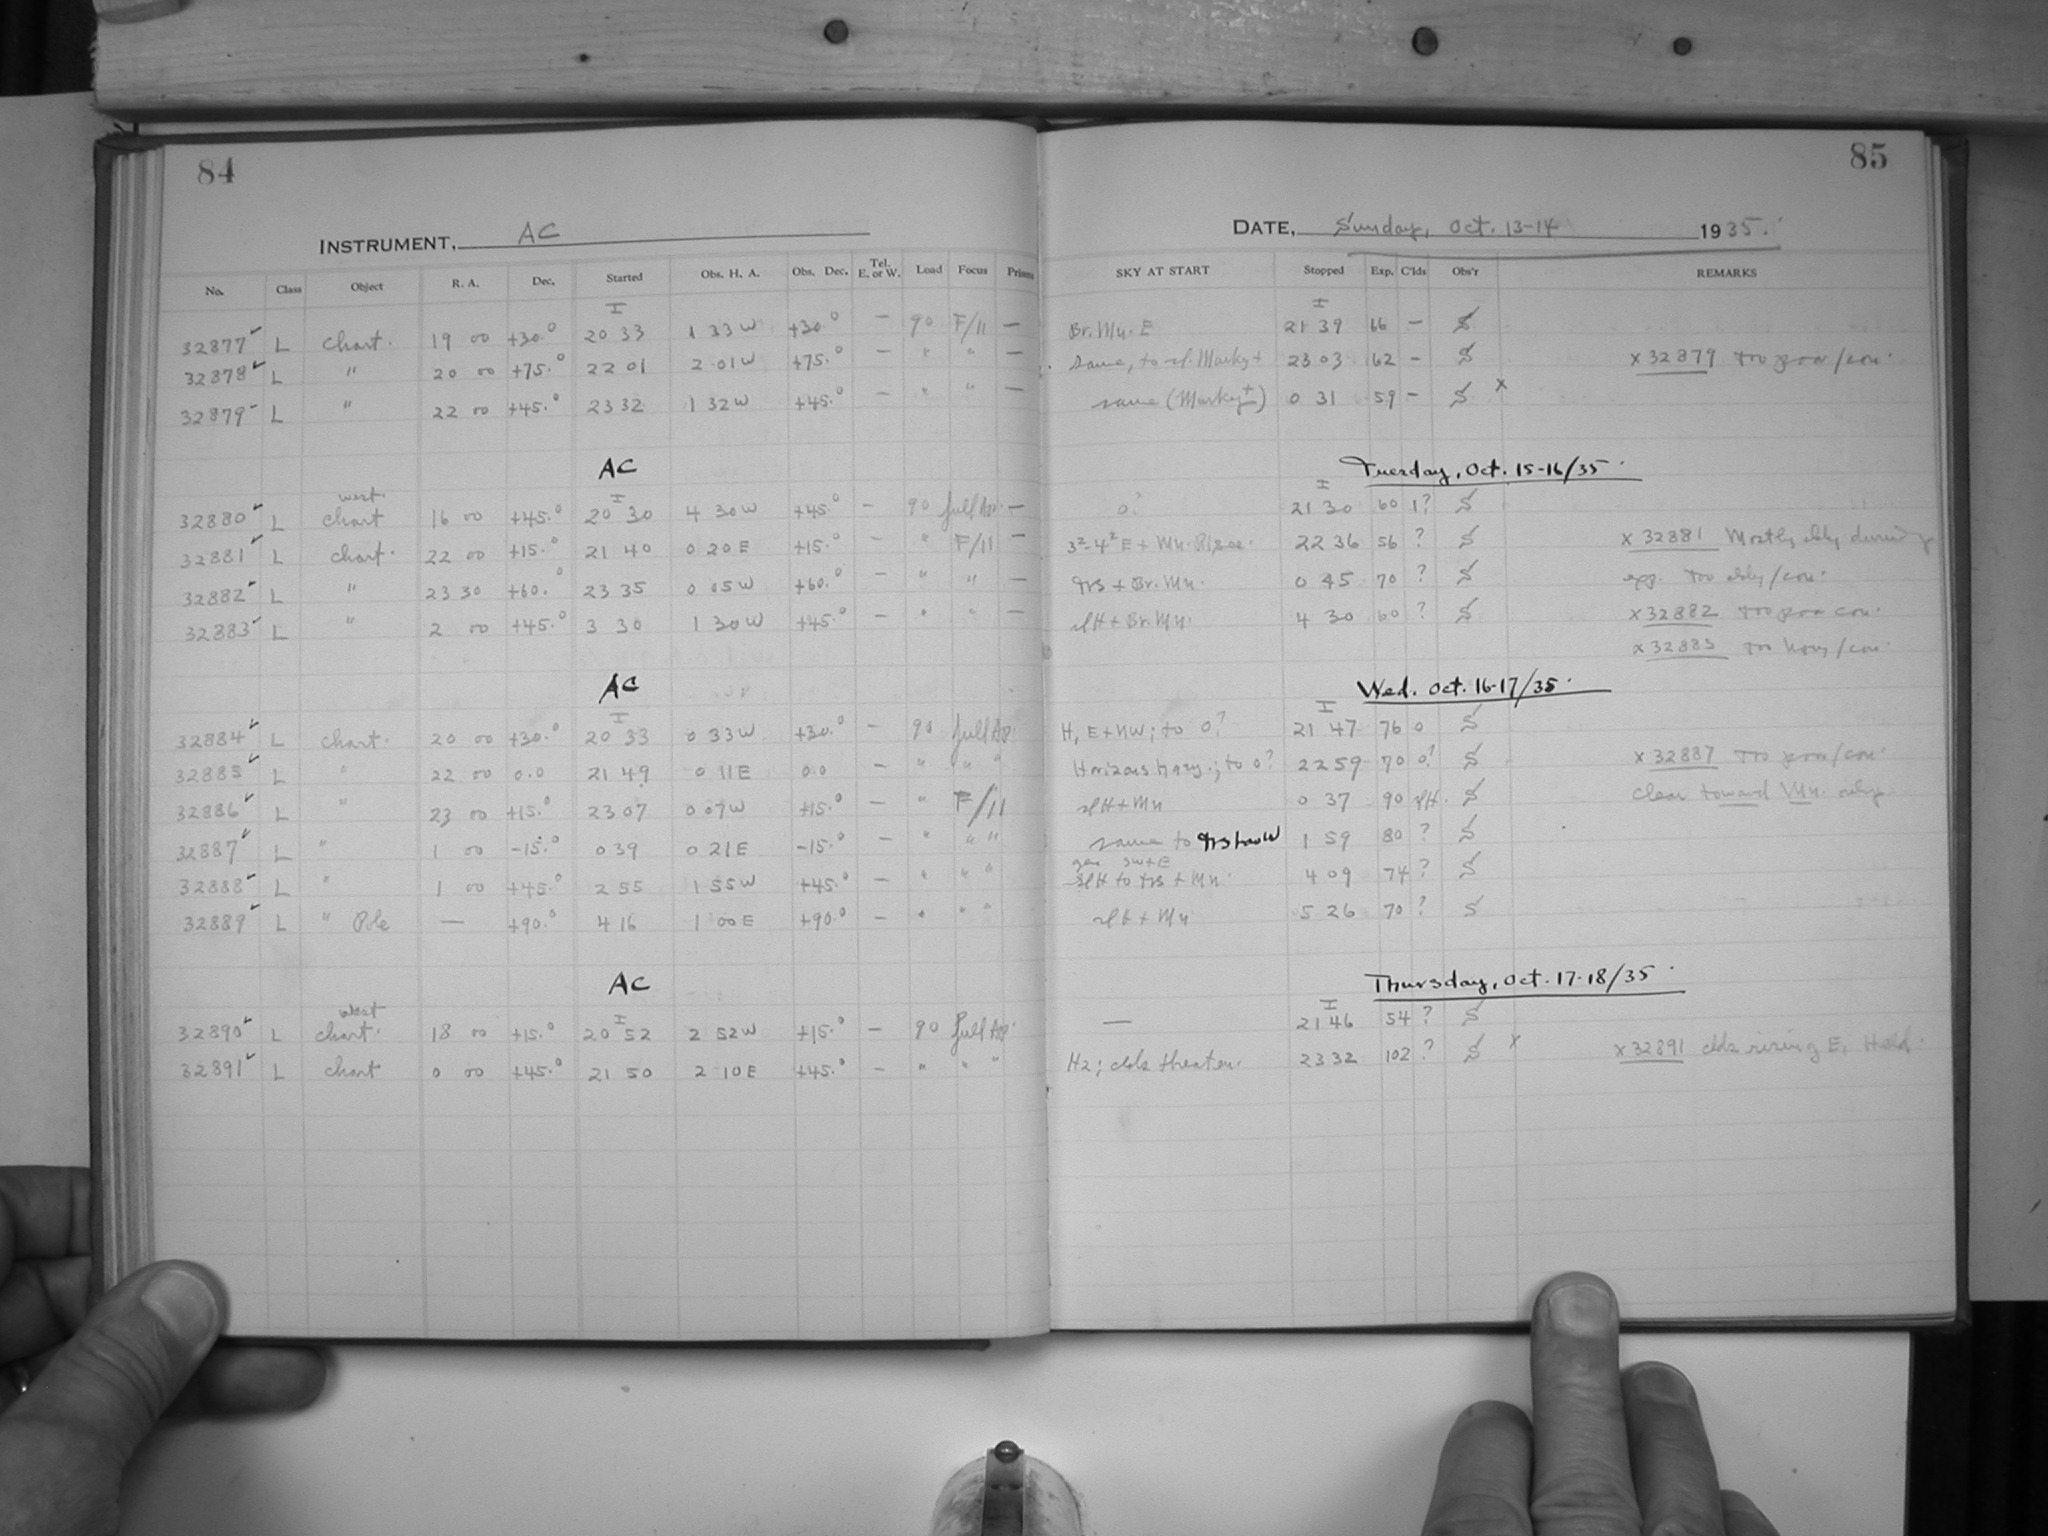 84
INSTRUMENT, AC
No. Class Object R. A. Dec. Started Obs. H. A. Obs. Dec. Tel. E. or W. Load Focus Prism
I
32877 ✓ L chart. 19 00 +30.° 20 33 1 33 W +30.° — 90 F/11 —
32878 ✓ L " 20 00 +75.° 22 01 2 01 W +75.° — " " —
32879 - L " 22 00 +45.° 23 32 1 32 W +45.° — " " —
AC
west.
32880 ✓ L chart 16 00 +45.° 20 30 4 30 W +45.° — 90 full Ap. —
32881 ✓ L chart. 22 00 +15.° 21 40 0 20 E +15.° — " F/11 —
32882 ✓ L " 23 30 +60.° 23 35 0 05 W +60.° — " " —
32883 ✓ L " 2 00 +45.° 3 30 1 30 W +45.° — " " —
AC
I
32884 ✓ L chart. 20 00 +30.° 20 33 0 33 W +30.° — 90 full Ap.
32885 ✓ L " 22 00 0.0 21 49 0 11 E 0.0 — " " "
32886 ✓ L " 23 00 +15.° 23 07 0 07 W +15.° — " F/11
32887 ✓ L " 1 00 -15.° 0 39 0 21 E -15.° — " " "
32888 ✓ L " 1 00 +45.° 2 55 1 55 W +45.° — " " "
32889 ✓ L " Pole — +90.° 4 16 1 00 E +90.° — " " "
AC
west
32890 ✓ L chart. 18 00 +15.° 20 52 2 52 W +15.° — 90 full Ap.
32891 ✓ L chart 0 00 +45.° 21 50 2 10 E +45.° — " " "
85
DATE, Sunday, Oct. 13-14 1935.
SKY AT START Stopped Exp. C'lds Obs'r REMARKS
I
Br. Mn. E 21 39 66 — S
same, to Murky + 23 03 62 — S x 32879 too poor/con.
same (Murky +) 0 31 59 — S x
Tuesday, Oct. 15-16/35.
I
0? 21 30 60 1? S
3²-4² E + Mn. Rise. 22 36 56 ? S x 32881 Mostly cldy during
trs + Br. Mn. 0 45 70 ? S exp. too cldy/con.
slH + Br. Mn. 4 30 60 ? S x 32882 too poor con.
x 32883 too hazy/con.
Wed. Oct. 16-17/35.
I
H, E + NW; to 0? 21 47 76 0 S
Horizons hazy.; to 0? 22 59 70 0? S x 32887 too poor/con.
slH + Mn 0 37 90 slH. S clear toward Mn. only.
same to trs low W 1 59 80 ? S
SW + E
slH to trs + Mn. 4 09 74 ? S
+ Mn 5 26 70 ? S
Thursday, Oct. 17-18/35.
I
— 21 46 54 ? S
H2; clds threaten. 23 32 102 ? S x x 32891 clds rising E, Held.